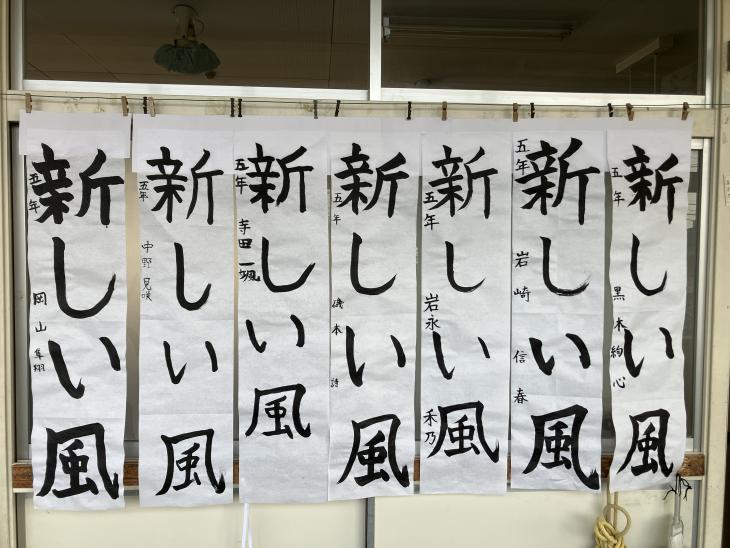 新しい風
五年 黒木絢心
新しい風
五年 岩崎信春
新しい風
五年 岩永禾乃
新しい風
五年 磯本 詩
新しい風
五年 寺田一颯
新しい風
五年 中野見咲
新しい風
五年 岡山隼翔